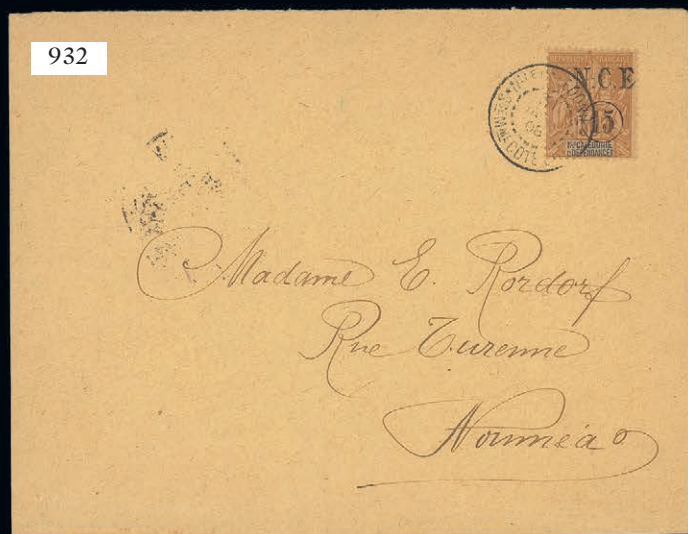 932
N.C.E
15
Nlle CALÉDONIE
ET DÉPENDANCES
Madame E. Rordorf
Rue Turenne
Nouméa